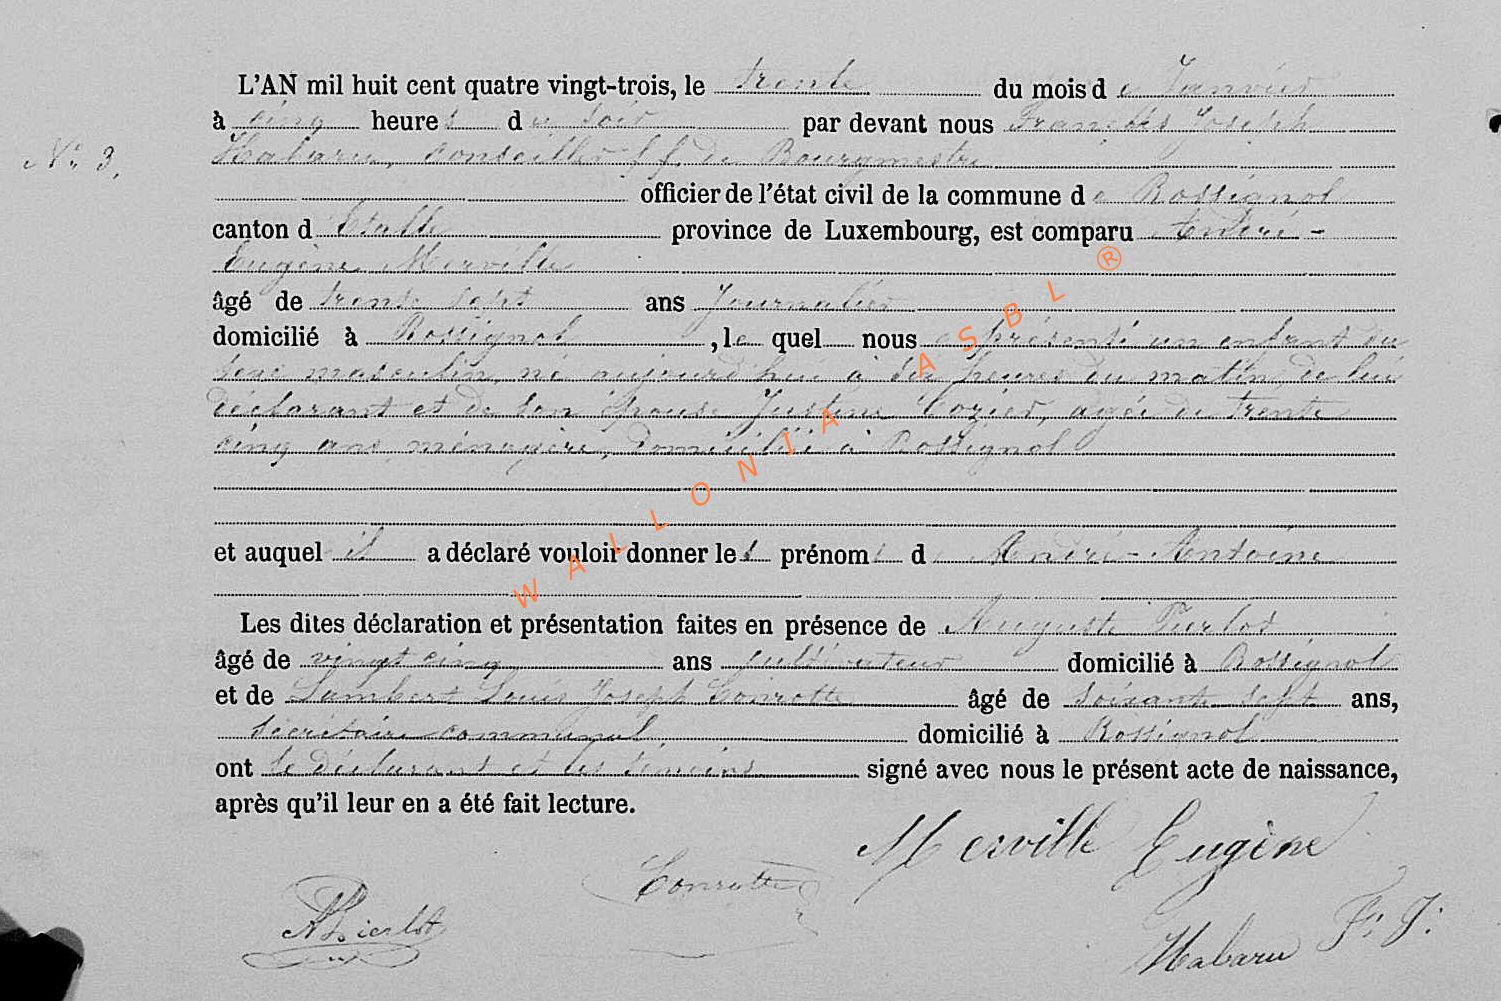 L'AN mil huit cent quatre vingt-trois, le trente du mois de Janvier
à cinq heures du soir par devant nous François Joseph
N° 3. Habaru, conseiller f f. de Bourgmestre
officier de l'état civil de la commune de Rossignol
canton d'Etalle province de Luxembourg, est comparu André-
Eugène Merville
âgé de trente sept ans Journalier
domicilié à Rossignol, le quel nous a présenté un enfant du
sexe masculin, né aujourd'hui à six heures du matin, de lui
déclarant et de son épouse Justine Cozier, agée de trente
cinq ans, ménagère, domiciliée à Rossignol
et auquel il a déclaré vouloir donner les prénoms d André-Antoine
Les dites déclaration et présentation faites en présence de Auguste
âgé de vingt cinq ans cultivateur domicilié à Rossignol
et de Lambert Louis Joseph Conrotte âgé de soixante sept ans,
secrétaire communal domicilié à Rossignol
ont le déclarant et les témoins signé avec nous le présent acte de naissance,
après qu'il leur en a été fait lecture.
Merville Eugène
Conrotte
APierlot
Habaru F. J.
WALLONIA ASBL ®